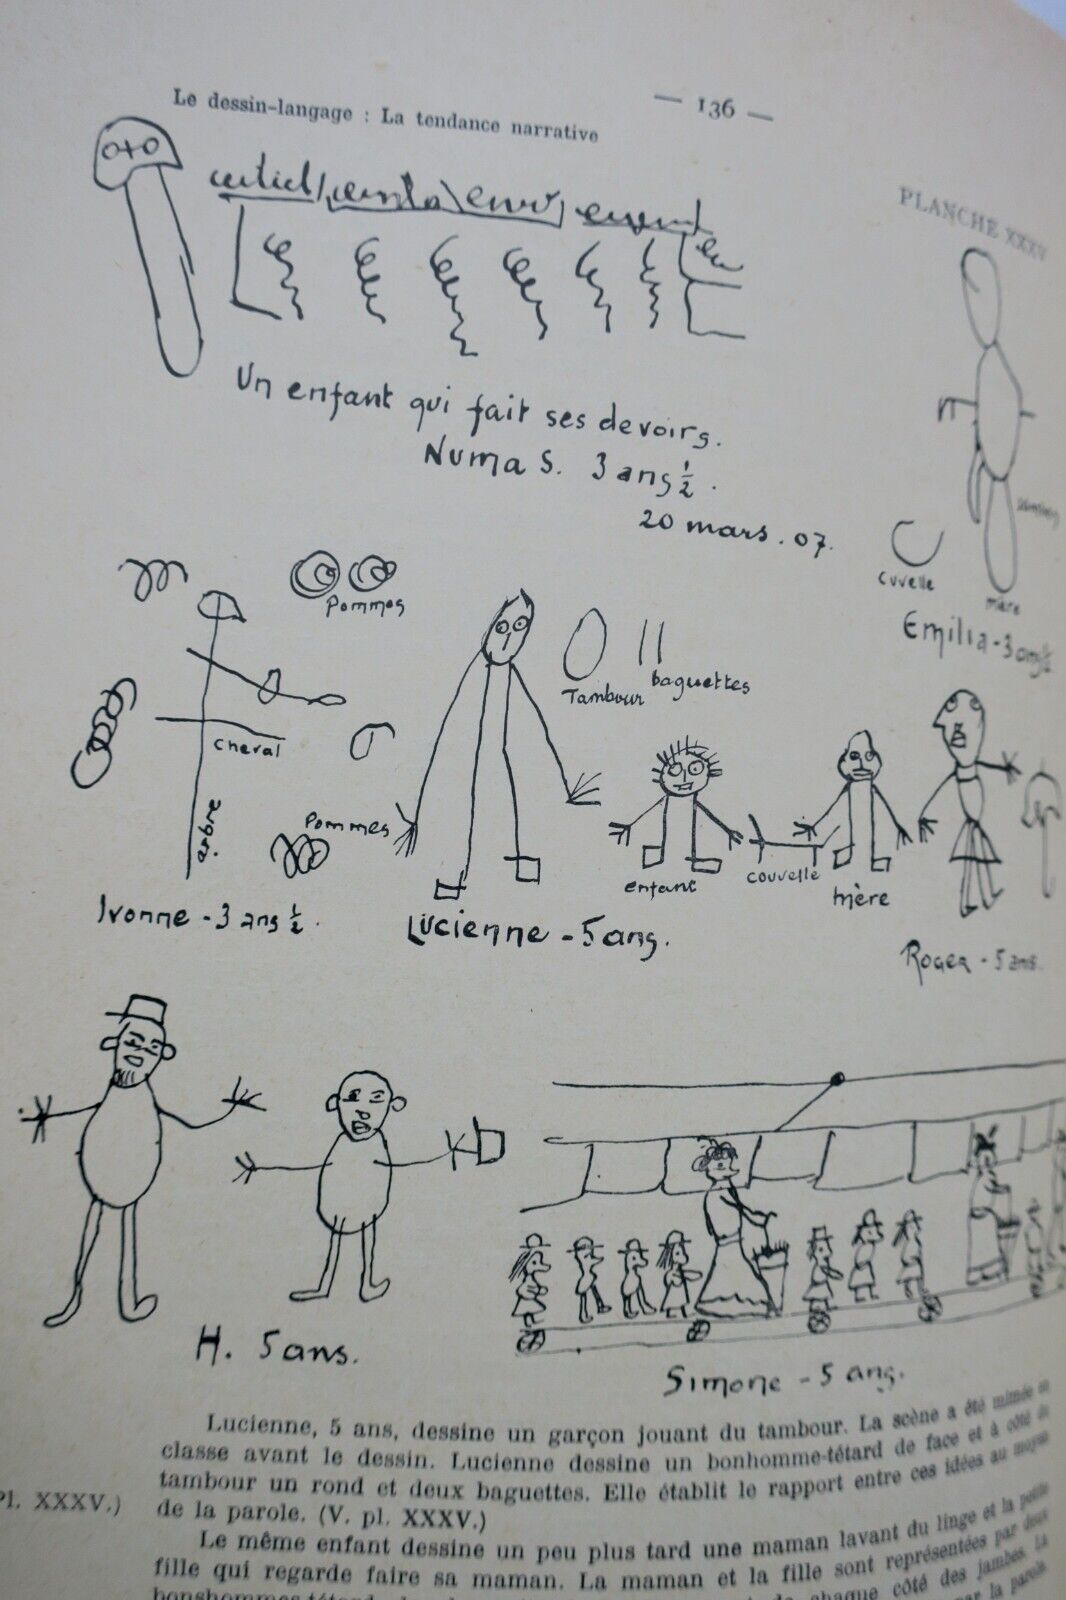 Le dessin-langage : La tendance narrative
— 136 —
PLANCHE XXXV
Un enfant qui fait ses devoirs.
Numa S. 3 ans ½.
20 mars. 07.
Cuvelle
mère
Emilia - 3 ans ½
Pommes
Cheval
arbre
Pommes
Ivonne - 3 ans ½.
Tambour
baguettes
enfant
couvelle
mère
Lucienne - 5 ans.
Roger - 5 ans.
H. 5 ans.
Simone - 5 ans.
Lucienne, 5 ans, dessine un garçon jouant du tambour. La scène a été mimée en
classe avant le dessin. Lucienne dessine un bonhomme-têtard de face et à côté du
tambour un rond et deux baguettes. Elle établit le rapport entre ces idées au moyen
Pl. XXXV.)
de la parole. (V. pl. XXXV.)
Le même enfant dessine un peu plus tard une maman lavant du linge et la petite
fille qui regarde faire sa maman. La maman et la fille sont représentées par deux
chaque côté des jambes. La
par la parole